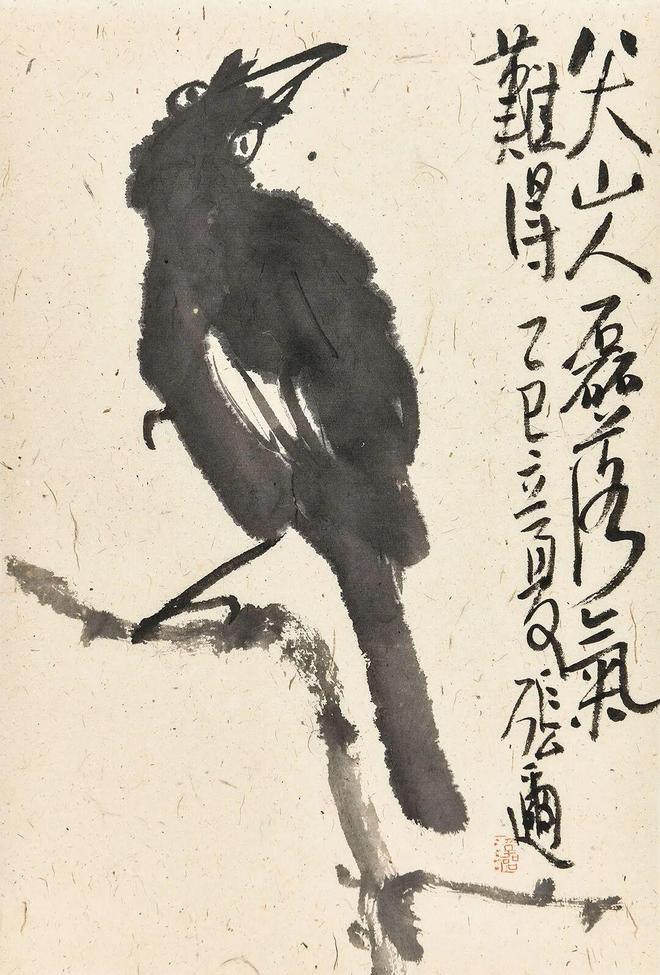 八大山人磊落氣
難得 乙巳立夏 邇